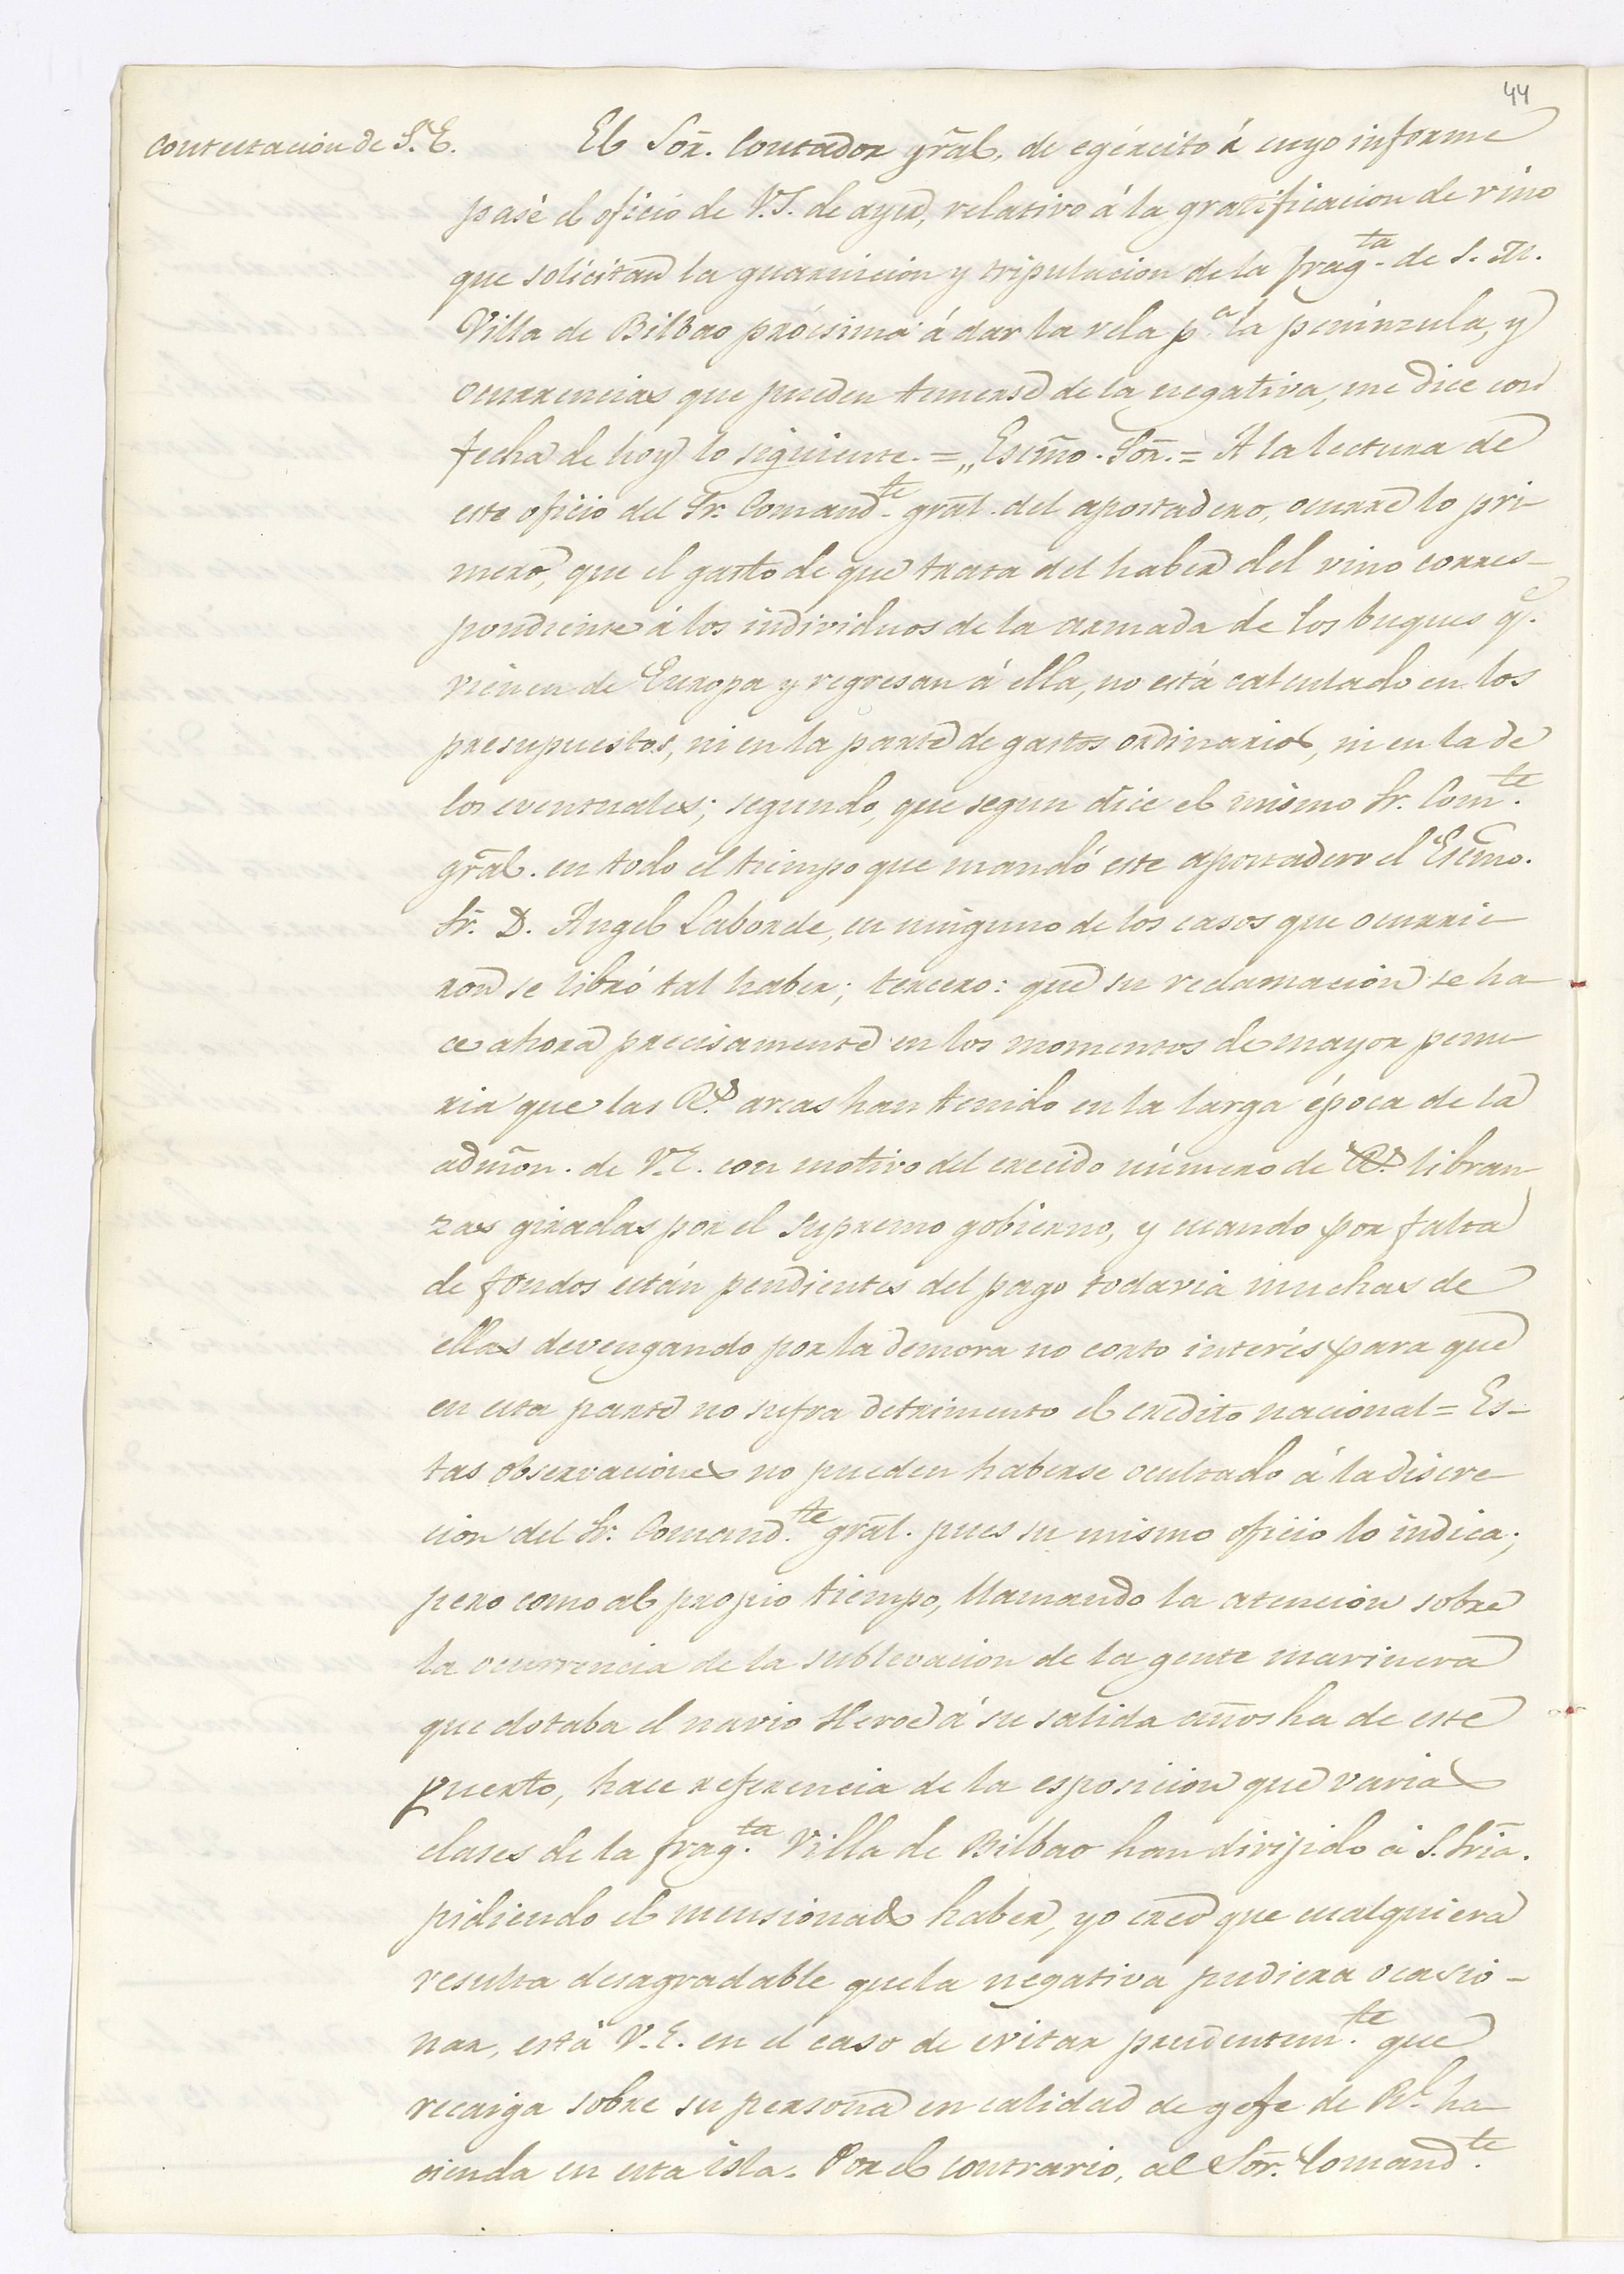 44
Contestacion de S.E.
El Sor. Contador gral. de egército á cuyo informe
pasé el oficio de V.S. de ayer, relativo á la gratificacion de vino
que solicitan la guarnicion y tripulacion de la frag.ta de S. M.
Villa de Bilbao prócsima á dar la vela p.a la peninzula, y
ocurrencias que pueden temerse de la negativa, me dice con
fecha de hoy lo siguiente.=„Escmo. Sor.= A la lectura de
este oficio del Sr. Comand.te gral. del apostadero, ocurre lo pri-
mero, que el gasto de que trata del haber del vino corres-
pondiente á los individuos de la armada de los buques q.e
vienen de Europa y regresan á ella, no está calculado en los
presupuestos, ni en la parte de gastos ordinarios, ni en la de
los eventuales; segundo, que segun dice el mismo Sr. Com.te
gral. en todo el tiempo que mandó este apostadero el Escmo.
Sr. D. Angel Laborde, en ninguno de los casos que ocurrie-
ron se libró tal haber; tercero: que su reclamacion se ha-
ce ahora precisamente en los momentos de mayor penu-
ria que las R.s arcas han tenido en la larga época de la
admon. de V.E. con motivo del crecido número de R.s libran-
zas giradas por el supremo gobierno, y cuando por falta
de fondos están pendientes del pago todavia muchas de
ellas devengando por la demora no corto interés para que
en esta parte no sufra detrimento el credito nacional= Es-
tas observaciones no pueden haberse ocultado á la discre-
cion del Sr. Comand.te gral. pues su mismo oficio lo indica;
pero como al propio tiempo, llamando la atencion sobre
la ocurrencia de la sublevacion de la gente marinera
que dotaba el navio Heroe á su salida años ha de este
puerto, hace referencia de la esposicion que varias
clases de la frag.ta Villa de Bilbao han dirijido á S. Sria.
pidiendo el mensionado haber, yo creo que cualquiera
resulta desagradable que la negativa pudiera ocasio-
nar, está V.E. en el caso de evitar prudentem.te que
recaiga sobre su persona en calidad de gefe de R.l ha-
cienda en esta isla. Por el contrario, al Sor. Comand.te